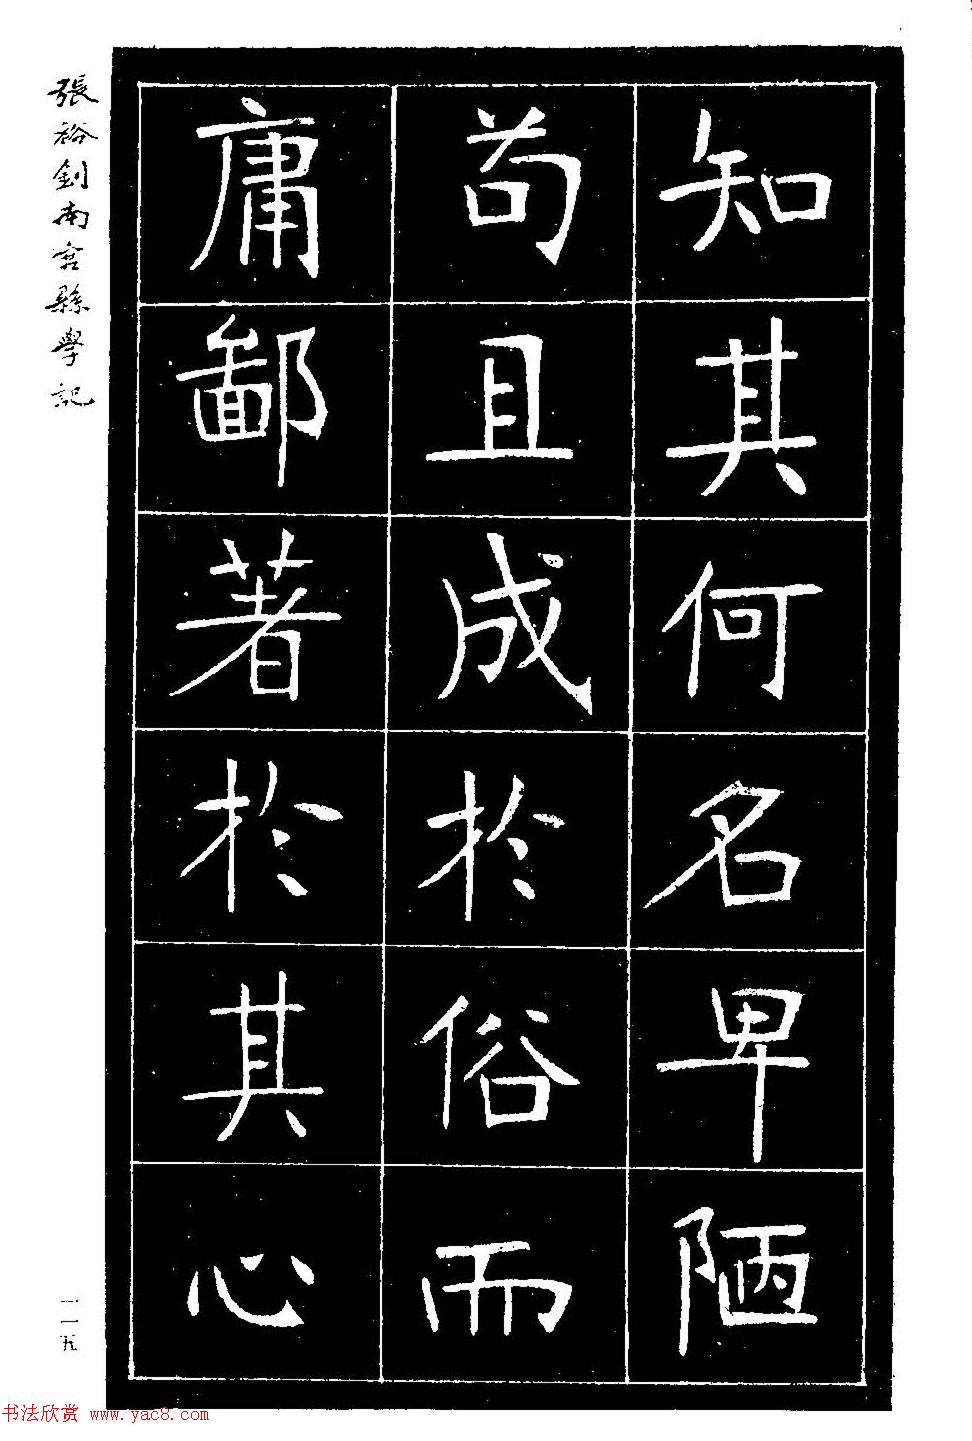 知其何名卑陋
苟且成於俗而
庸鄙著於其心
張裕釗南宮縣學記
一一五
书法欣赏 www.yac8.com